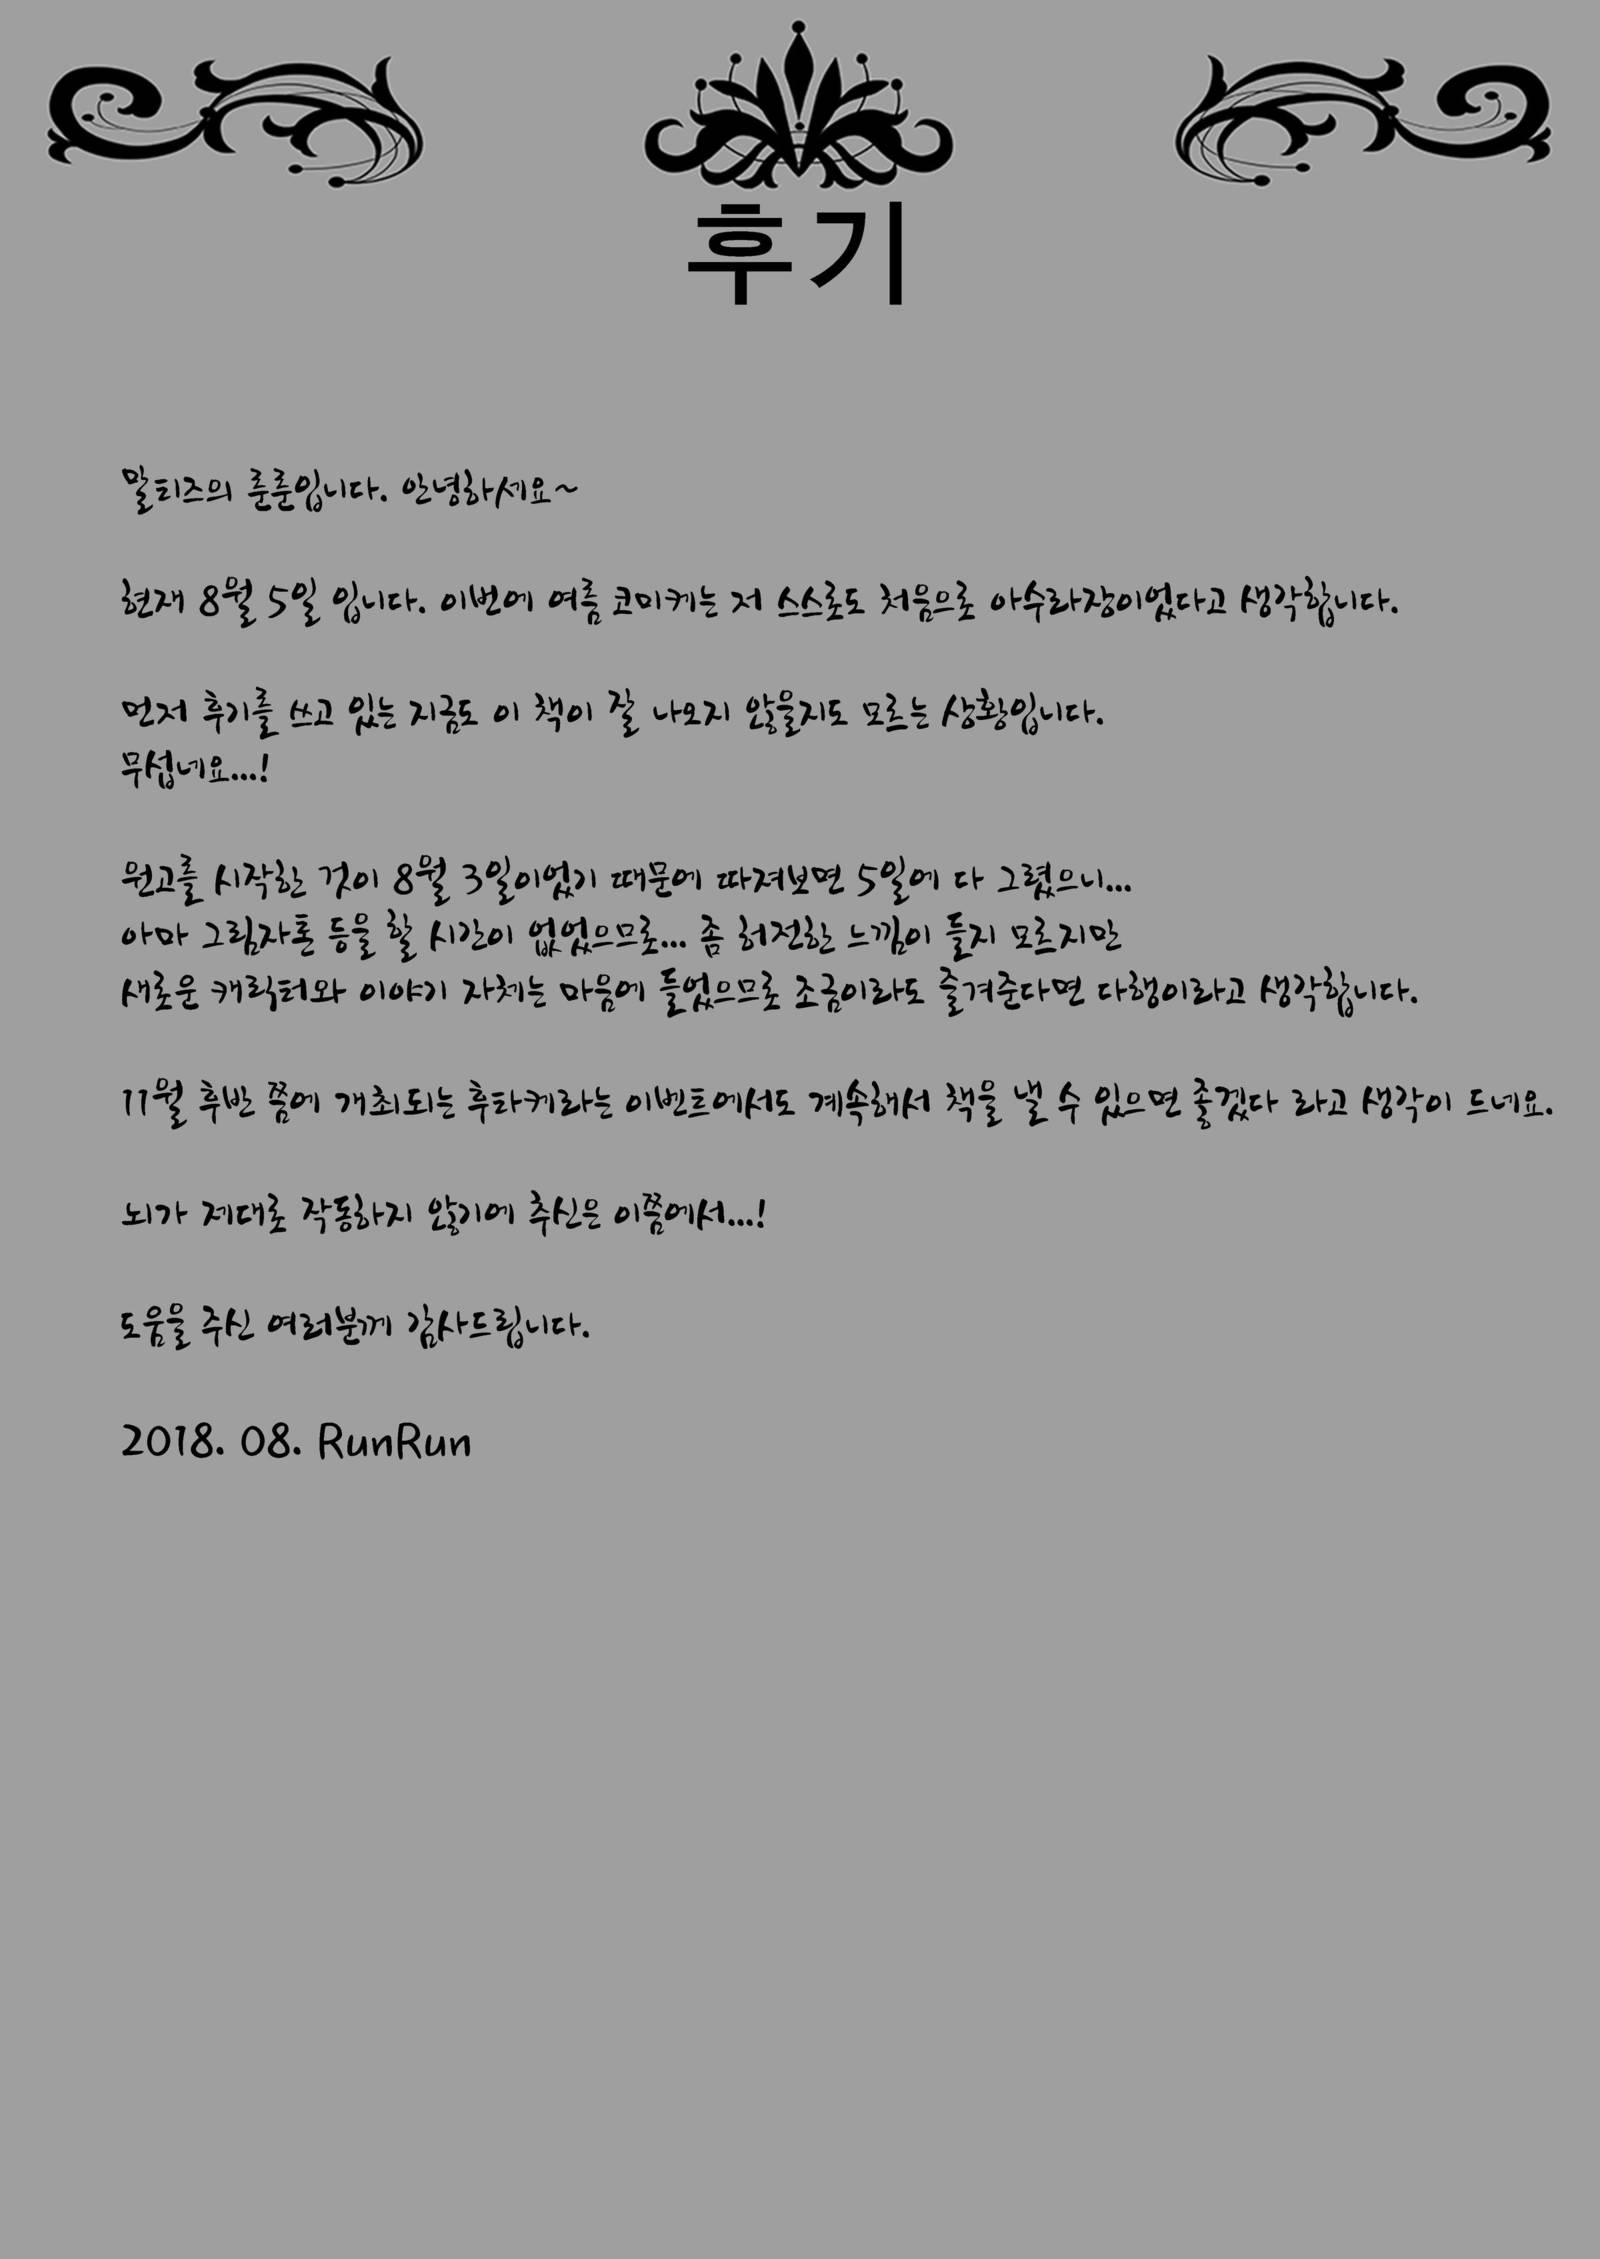 후기
말티즈의 룬룬입니다. 안녕하세요~
현재 8월 5일 입니다. 이번에 여름 코미케는 저 스스로도 처음으로 아수라장이었다고 생각합니다.
먼저 후기를 쓰고 있는 지금도 이 책이 잘 나오지 않을지도 모르는 상황입니다.
무섭네요...!
원고를 시작한 것이 8월 3일이었기 때문에 따져보면 5일에 다 그렸으니...
아마 그림자톤 등을 할 시간이 없었으므로... 좀 허전한 느낌이 들지 모르지만
새로운 캐릭터와 이야기 자체는 마음에 들었으므로 조금이라도 즐겨준다면 다행이라고 생각합니다.
11월 후반 쯤에 개최되는 후타케라는 이벤트에서도 계속해서 책을 낼 수 있으면 좋겠다 라고 생각이 드네요.
뇌가 제대로 작동하지 않기에 추신은 이쯤에서...!
도움을 주신 여러분께 감사드립니다.
2018. 08. RunRun